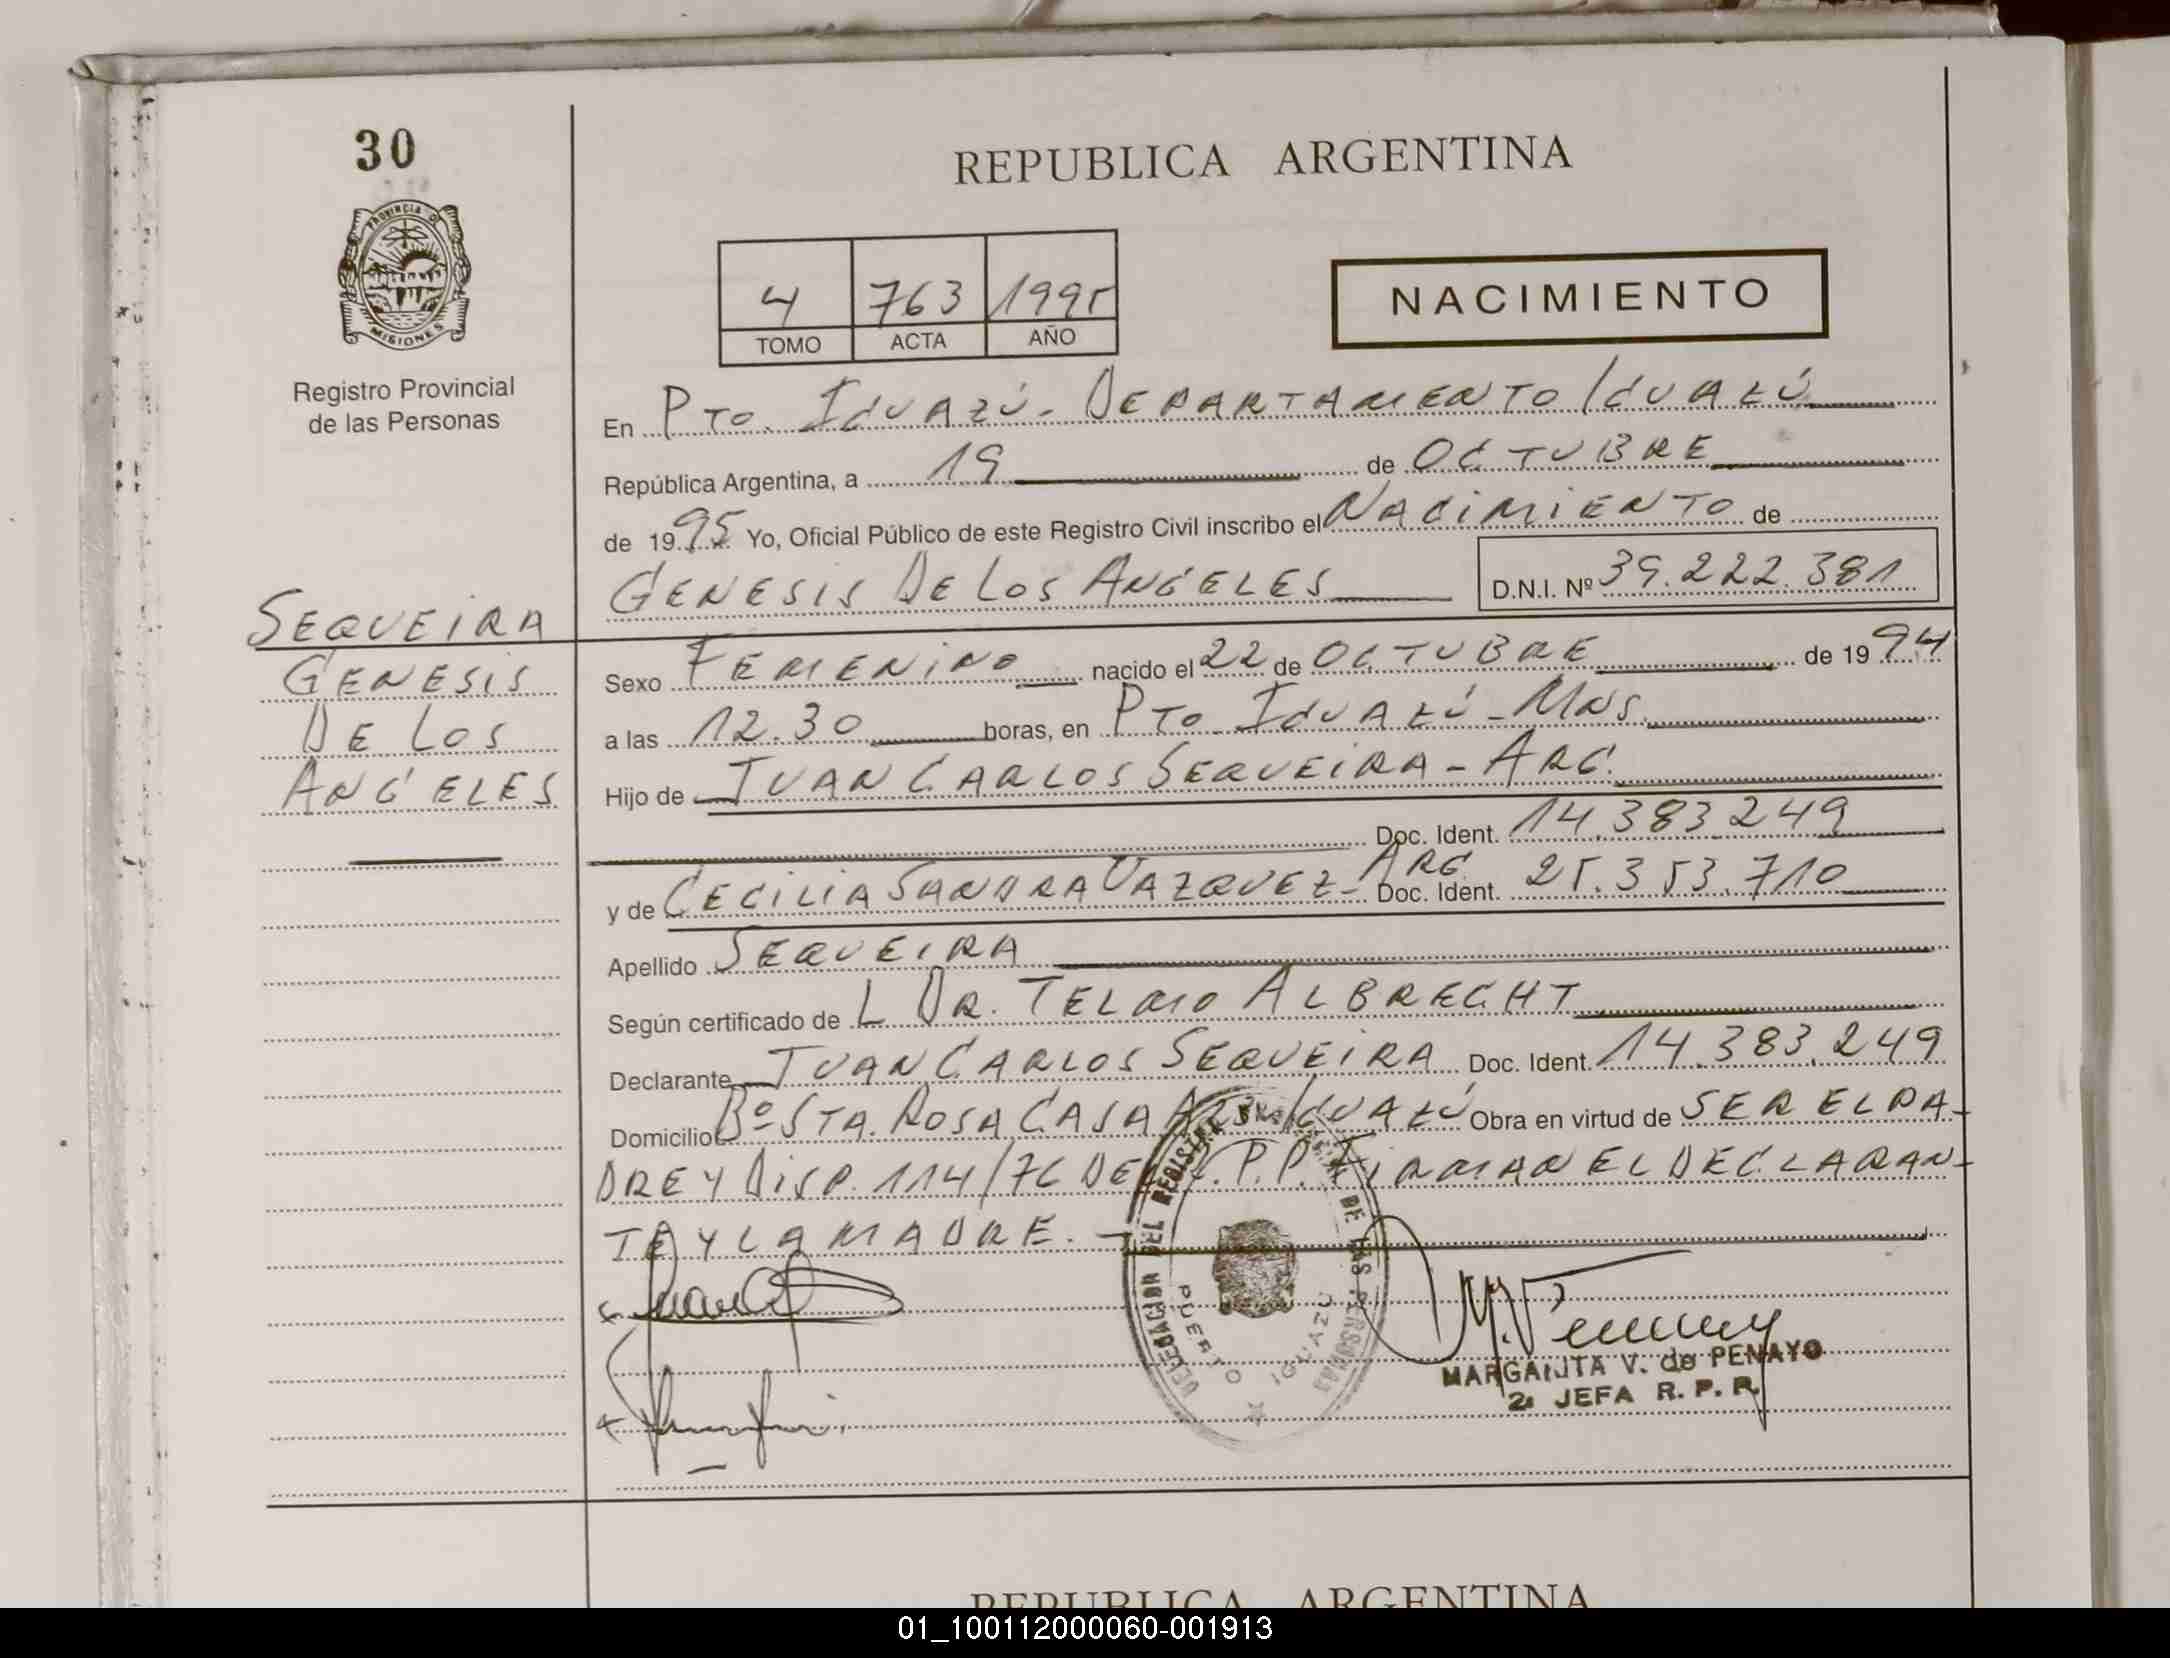 30
PROVINCIA DE
MISIONES
Registro Provincial
de las Personas
REPUBLICA ARGENTINA
4 763 1995
TOMO ACTA AÑO
NACIMIENTO
En PTO. IGUAZÚ - DEPARTAMENTO IGUAZÚ
República Argentina, a 19 de OCTUBRE
de 1995 Yo, Oficial Público de este Registro Civil inscribo el NACIMIENTO de
GENESIS DE LOS ANGELES D.N.I. Nº 39.222.381
SEQUEIRA
GENESIS
DE LOS
ANGELES
Sexo FEMENINO nacido el 22 de OCTUBRE de 1994
a las 12.30 horas, en PTO IGUAZÚ - MNS.
Hijo de JUAN CARLOS SEQUEIRA - ARG.
Doc. Ident. 14.383.249
y de CECILIA SANDRA VAZQUEZ - ARG. Doc. Ident. 25.353.710
Apellido SEQUEIRA
Según certificado de L DR. TELMO ALBRECHT
Declarante JUAN CARLOS SEQUEIRA Doc. Ident. 14.383.249
Domicilio Bº STA. ROSA CASA IGUAZÚ Obra en virtud de SER EL PA-
DRE Y DISP. 114/76 DEL P.P. FIRMAN EL DECLARAN-
TE Y LA MADRE. -
DELEGACION DEL REGISTRO PROVINCIAL DE LAS PERSONAS
PUERTO IGUAZU
MARGARITA V. de PENAYO
2ª JEFA R. P. P.
REPUBLICA ARGENTINA
01_100112000060-001913